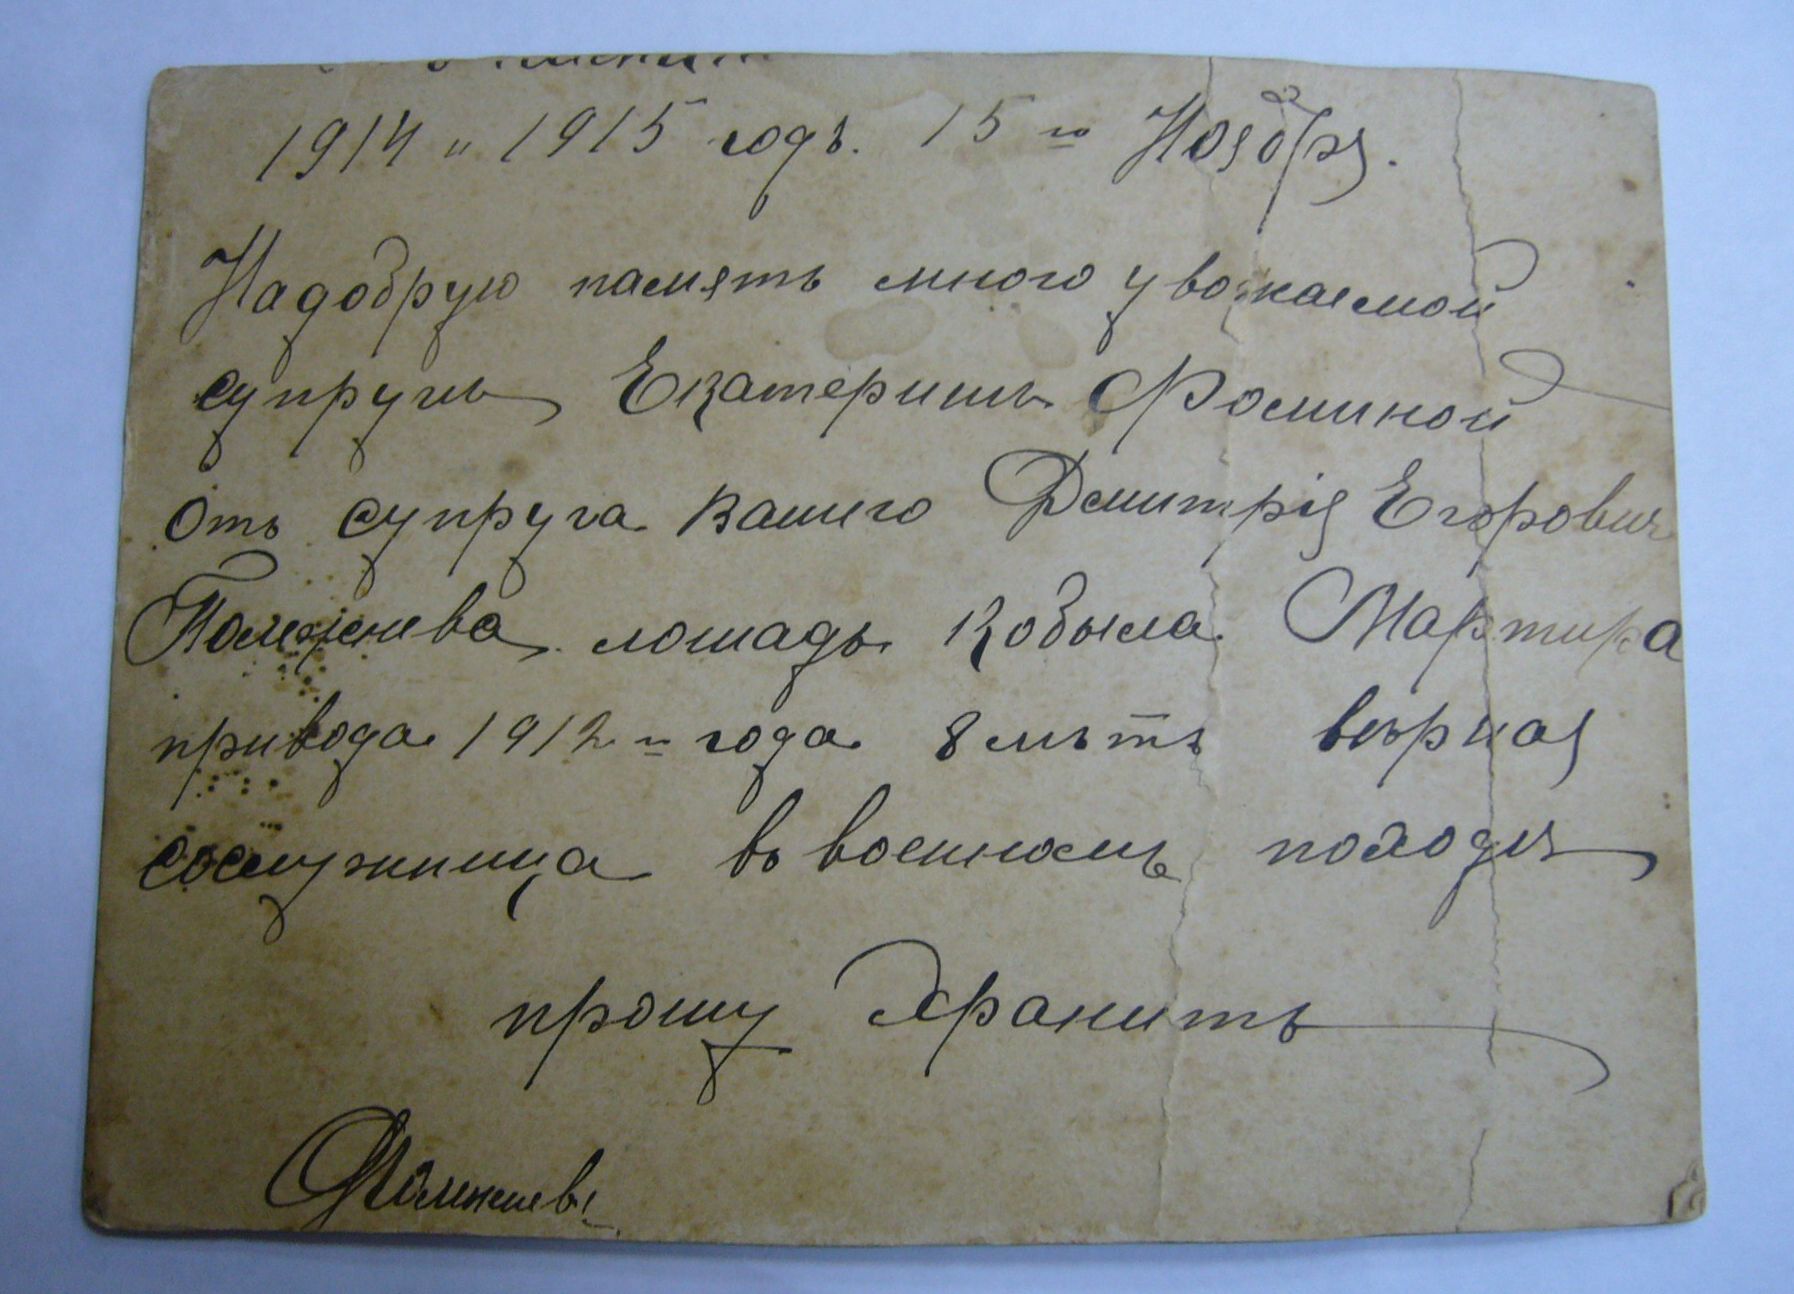 1914 и 1915 годъ. 15 го Ноября.
Надобрую память много увожаемой
супруги Екатерины Фоминой
Отъ супруга Вашего Дмитрія Егорович
лошадь Кобыла Мартира
привода 1912 го года 8 лѣтъ вѣрная
сослужница въ военномъ походѣ
прошу Хранить